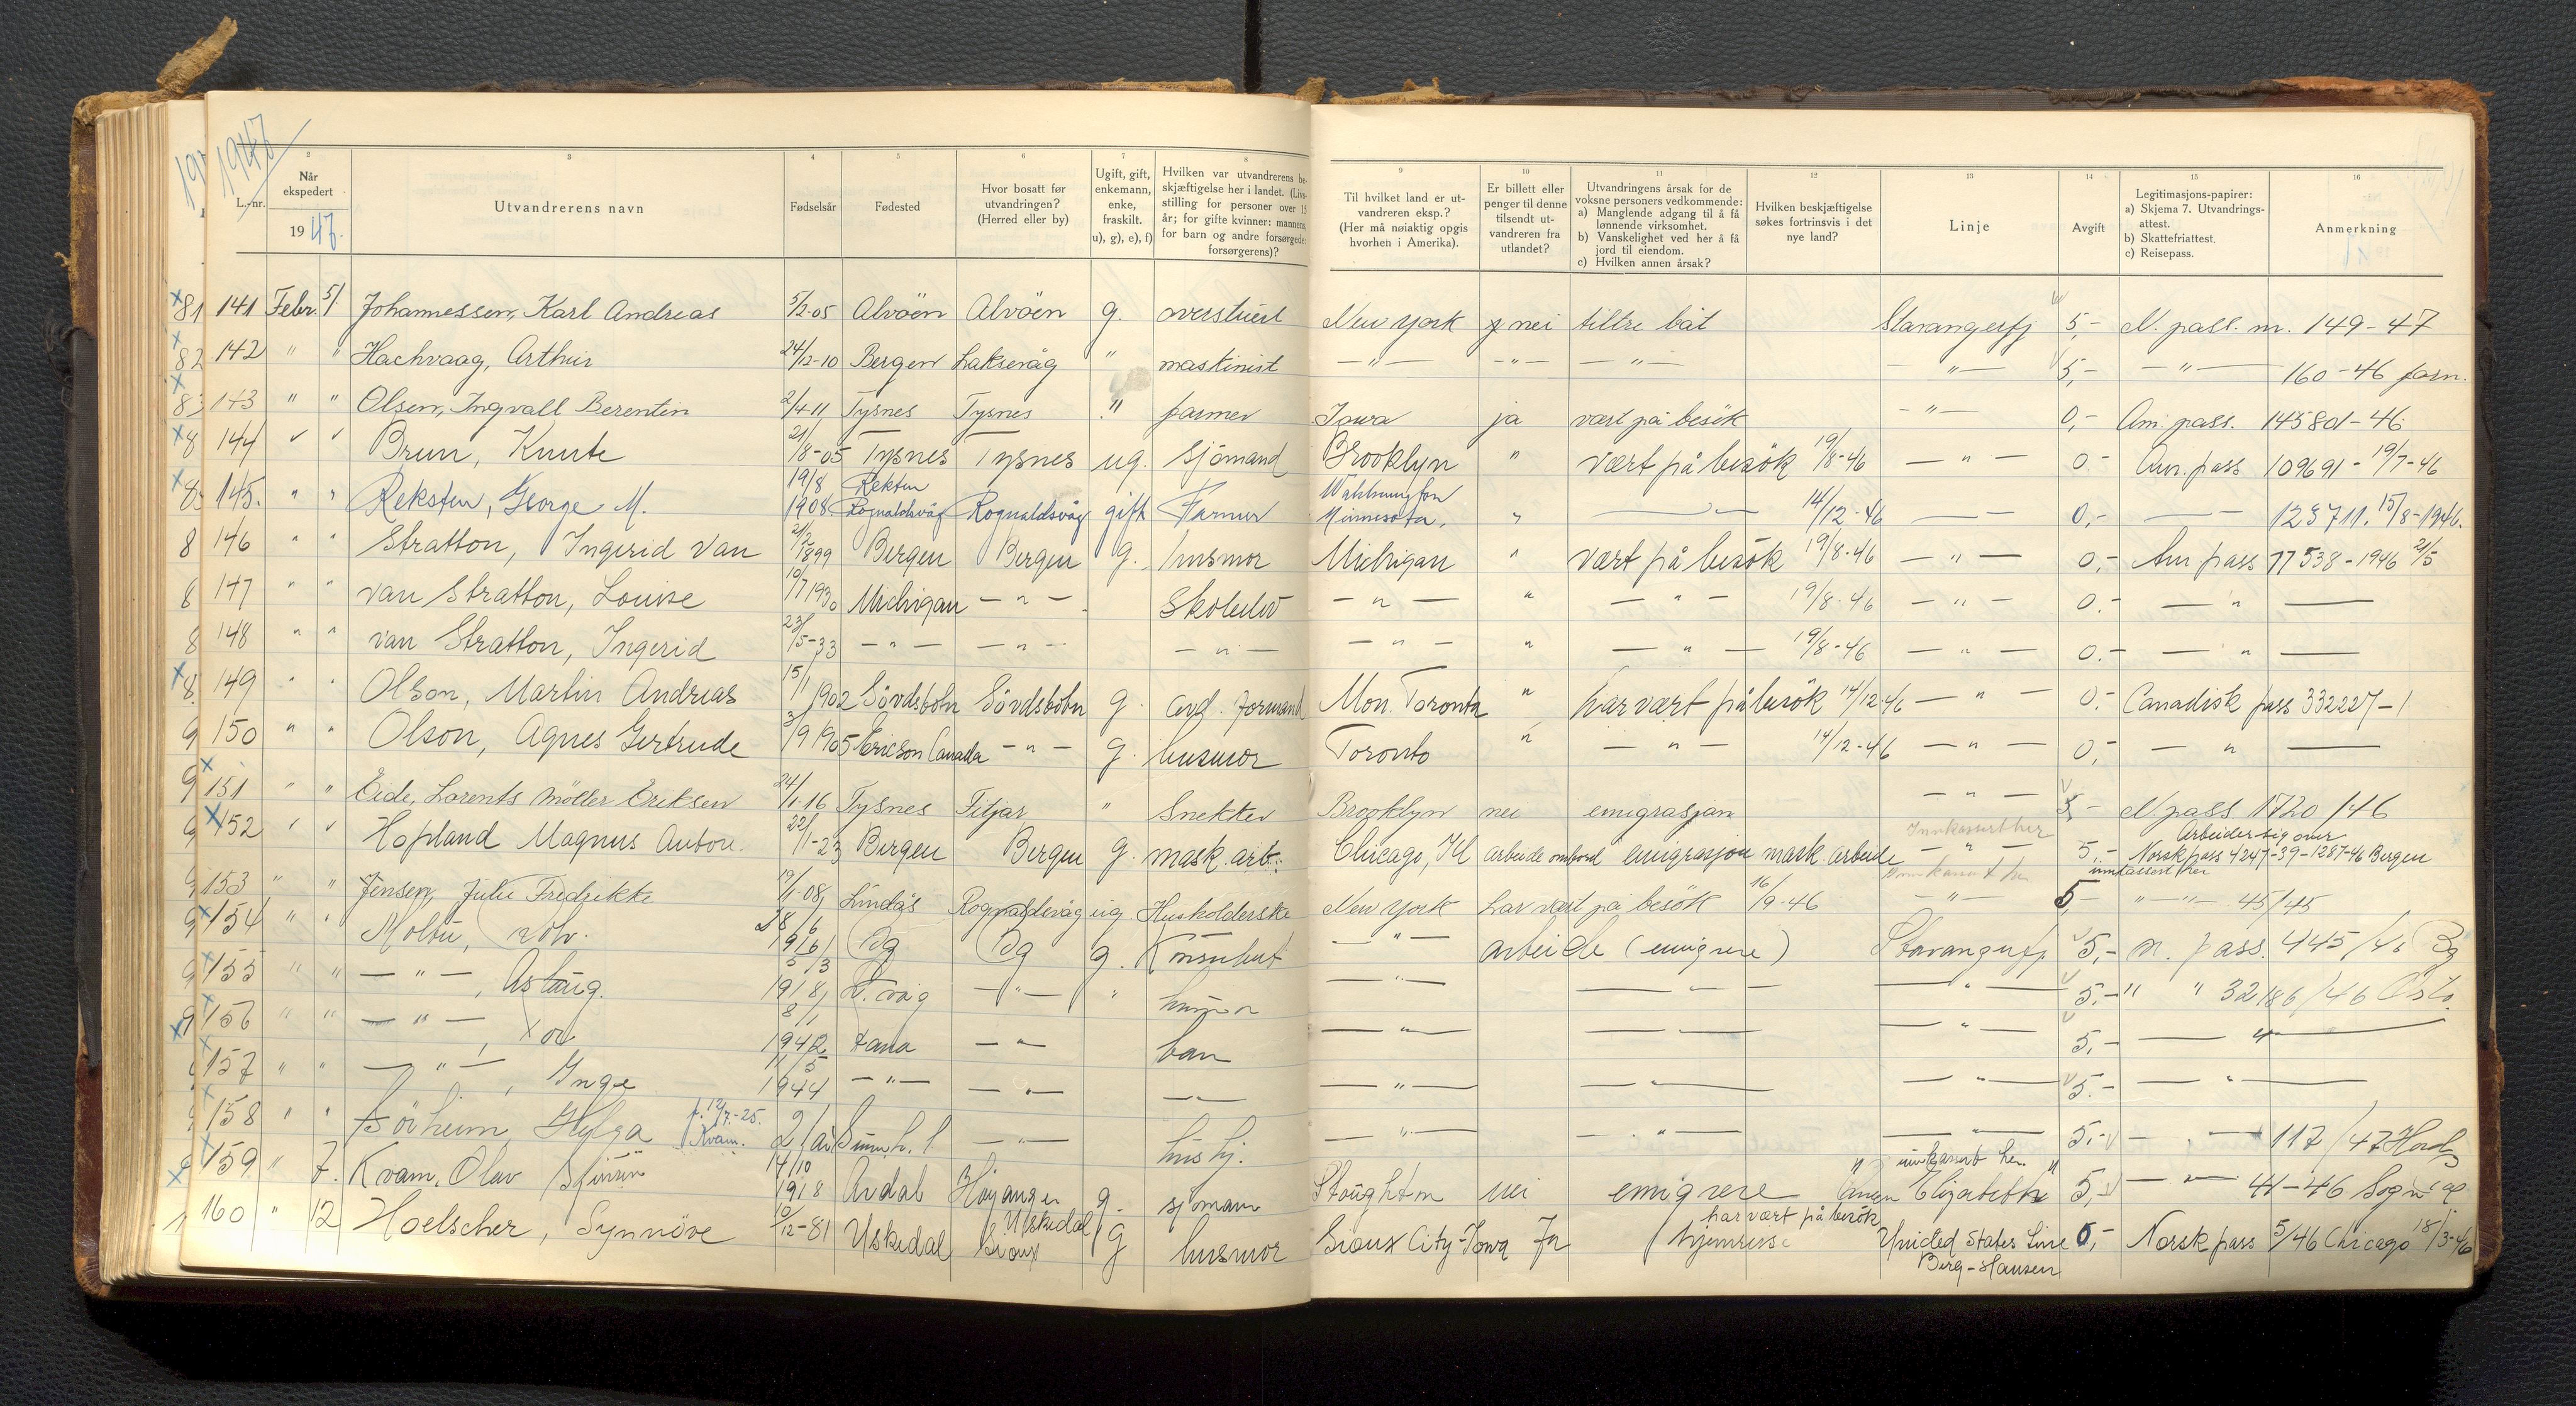 1947
2 3 4 5 6 7 8 9 10 11 12 13 14 15 16
L.-nr. Når ekspedert 1947. Utvandrerens navn Fødselsår Fødested Hvor bosatt før utvandringen? (Herred eller by) Ugift, gift, enkemann, enke, fraskilt. u), g), e), f) Hvilken var utvandrerens be- skjæftigelse her i landet. (Livs- stilling for personer over 15 år; for gifte kvinner: mannens, for barn og andre forsørgede: forsørgerens)? Til hvilket land er ut- vandreren eksp.? (Her må nøiaktig opgis hvorhen i Amerika). Er billett eller penger til denne tilsendt ut- vandreren fra utlandet? Utvandringens årsak for de voksne personers vedkommende: a) Manglende adgang til å få lønnende virksomhet. b) Vanskelighet ved her å få jord til eiendom. c) Hvilken annen årsak? Hvilken beskjæftigelse søkes fortrinsvis i det nye land? Linje Avgift Legitimasjons-papirer: a) Skjema 7. Utvandrings- attest. b) Skattefriattest. c) Reisepass. Anmerkning
141 Febr. 5/. Johannessen, Karl Andreas 5/2-05 Alvöen Alvöen g. overstuert New York nei tiltre båt Stavangerfj 5,- N. pass. nr. 149-47
142 " " Hachvaag, Arthur 24/12-10 Bergen Laksevåg " maskinist -"- -"- -"- -"- 5,- -"- 160-46 forn.
143 " " Olsen, Ingvall Berentin 2/4 11 Tysnes Tysnes " farmer Iowa ja vært på besök -"- 0,- Am. pass. 145801-46.
144 " " Brun, Knute 21/8-05 Tysnes Tysnes ug. sjömand Brooklyn " vært på besök 19/8-46 -"- 0.- Am. pass 109691-19/7-46
145. " " Reksten, George M. 19/8 1908 Reksten Rognaldsvåg Rognaldsvåg gift Farmer Minnesota. " 14/12-46 0,- 123711. 15/8-1946.
146 " " Stratton, Ingerid Van 21/2 1899 Bergen Bergen g. husmor Michigan " vært på besök 19/8-46 -"- 0,- Am pass 77538-1946 21/5
147 " " van Stratton, Louise 10/7 1930 Michigan -"- Skoleelev -"- " -"- 19/8-46 -"- 0.- -"-
148 " " van Stratton, Ingerid 23/5-33 -"- -"- -"- -"- " -"- 19/8-46 -"- 0.- -"-
149 " " Olson, Martin Andreas 15/1 1902 Sövdsbotn Sövdsbotn g avd. formand Mon. Toronto " har vært på besök 14/12 46 -"- 0.- Canadisk pass 332227-1
150 " " Olson, Agnes Gertrude 3/9 1905 Ericson Canada -"- g. husmor Toronto " -"- 14/12-46 -"- 0,- -"-
151 " " Eide, Lorents Möller Eriksen 24/1-16 Tysnes Fitjar " Snekker Brooklyn nei emigrasjon -"- 5,- N. pass 1720/46
152 " " Hopland Magnus Anton. 22/1-23 Bergen Bergen g. mask. arb. Chicago, Ill arbeide ombord emigrasjon mask. arbeide Innkassert her -"- 5,- Arbeider sig over Norsk pass 4247-39-1287-46 Bergen innkassert her
153 " " Jensen, Julie Fredrikke 19/1-08 Lindås Rognaldsvåg ug. Husholderske New York har vært på besök 16/9-46 -"- 5,- "-"- 45/45
154 " " Moltu, 28/6 1916 Bg Bg g. -"- arbeide (emigrere) Stavangerfj 5,- n. pass. 445/46 Bg
155 " " -"-, Aslaug. 5/3 1918 -"- " husmor -"- -"- -"- 5.- " " 32186/46 Oslo
156 " " -"-, 8/1 1942 Fana -"- barn -"- -"- -"- 5,- -"-
157 " " -"-, Inge 11/5 1944 -"- -"- -"- -"- -"- -"- 5.- -"-
158 " " Helga f. 12/7-25. Kvam. -"- hushj. -"- -"- -"- 5.- -"- 117/47 Hord
159 " 7. Kvam, Olav 14/10 1918 Avdal Höyanger g. sjömann Stoughton nei emigrere innkassert her. " Elizabeth " 5,- -"- 41-46 Sogn
160 " 12 Hoelscher, Synnöve 10/12-81 Uskedal Uskedal Sioux g husmor Sioux City-Iowa Ja har vært på besök hjemreise Unided States Line Berg-Hansen 0,- Norsk pass 5/46 Chicago 18/3-46